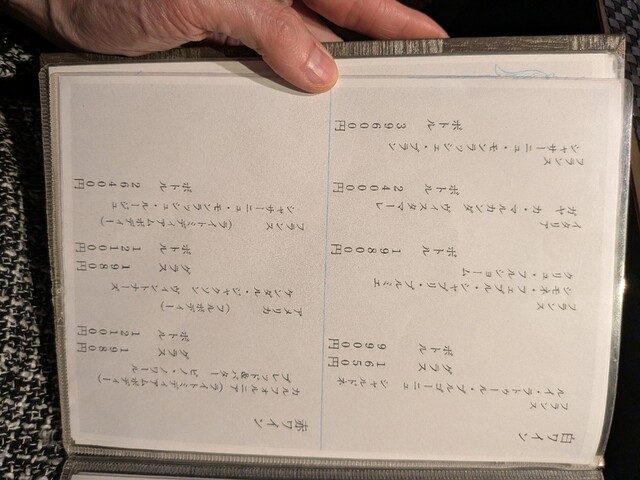 白ワイン
フランス
ルイ・ラトゥール・ブルゴーニュ シャルドネ
グラス 1650円
ボトル 9900円
フランス
シモネ・フェブル・シャブリ・プルミエ
クリュ・フルショーム
ボトル 19800円
イタリア
ガヤ カ・マルカンダ ヴィスタマーレ
ボトル 26400円
フランス
シャサーニュ・モンラッシェ・ブラン
ボトル 39600円
赤ワイン
カルフォルニア (ライトミディアムボディー)
ブレッド&バター ピノ・ノワール
グラス 1980円
ボトル 12100円
アメリカ (フルボディー)
ケンダル・ジャクソン ヴィントナーズ
グラス 1980円
ボトル 12100円
フランス (ライトミディアムボディー)
シャサーニュ・モンラッシェ・ルージュ
ボトル 26400円